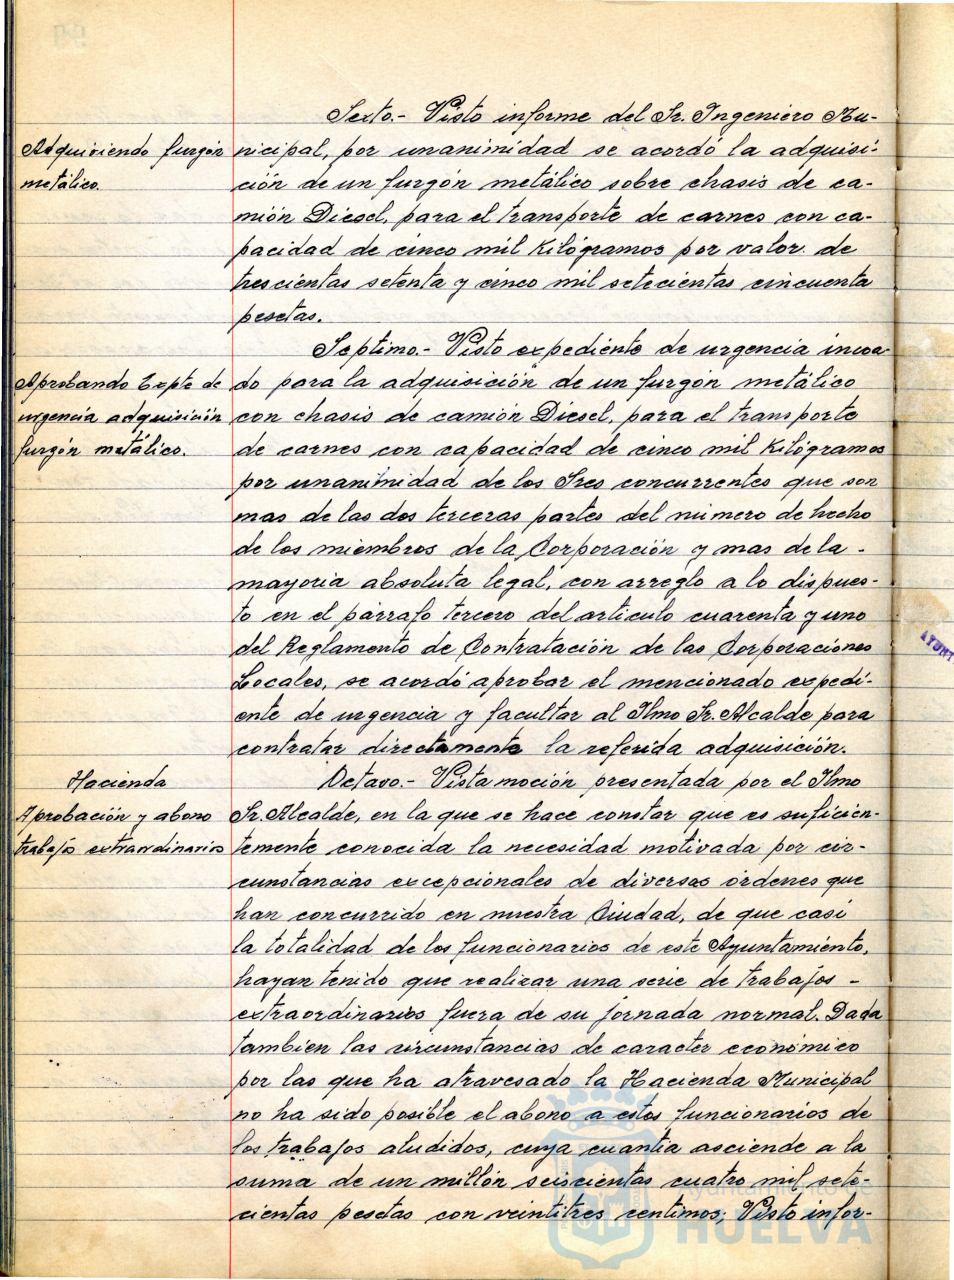 Sexto.- Visto informe del Sr. Ingeniero Mu-
Adquiriendo furgón
metálico.
nicipal, por unanimidad se acordó la adquisi-
ción de un furgón metálico sobre chasis de ca-
mión Diesel, para el transporte de carnes con ca-
pacidad de cinco mil Kilógramos por valor de
trescientas setenta y cinco mil setecientas cincuenta
pesetas.
Septimo.- Visto expediente de urgencia incoa-
Aprobando Expte de
urgencia adquisición
furgón metálico.
do para la adquisición de un furgón metálico
con chasis de camión Diesel, para el transporte
de carnes con capacidad de cinco mil Kilógramos
por unanimidad de los Sres concurrentes que son
mas de las dos terceras partes del número de hecho
de los miembros de la Corporación y mas de la -
mayoria absoluta legal, con arreglo a lo dispues-
to en el párrafo tercero del articulo cuarenta y uno
del Reglamento de Contratación de las Corporaciones
Locales, se acordó aprobar el mencionado expedi-
ente de urgencia y facultar al Ilmo Sr. Alcalde para
contratar directamente la referida adquisición.
Hacienda
Aprobación y abono
trabajos extraordinarios
Octavo.- Vista moción presentada por el Ilmo
Sr. Alcalde, en la que se hace constar que es suficien-
temente conocida la necesidad motivada por cir-
cunstancias excepcionales de diversas órdenes que
han concurrido en nuestra Ciudad, de que casi
la totalidad de los funcionarios de este Ayuntamiento,
hayan tenido que realizar una serie de trabajos -
extraordinarios fuera de su jornada normal. Dada
tambien las circunstancias de caracter económico
por las que ha atravesado la Hacienda Municipal
no ha sido posible el abono a estos funcionarios de
los trabajos aludidos, cuya cuantia asciende a la
suma de un millón seiscientas cuatro mil sete-
cientas pesetas con veintitres centimos; Visto infor-
Ayuntamiento de
HUELVA